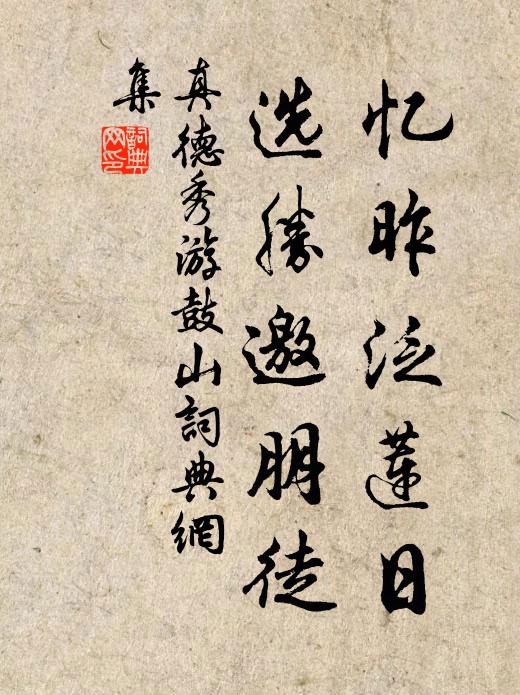 忆昨泛莲日
选胜邀朋徒
真德秀游鼓山词典網
集
詞典網印